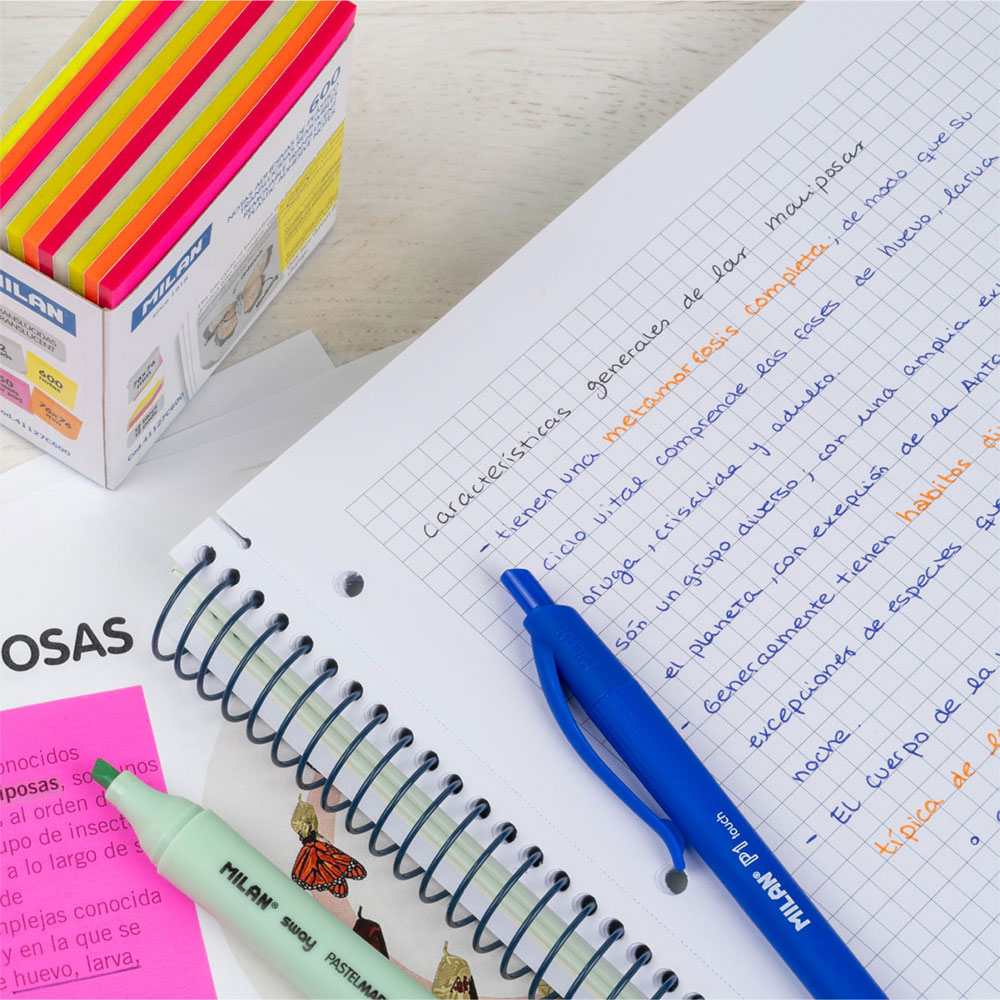 600
MILAN
SINCE 1918
MILAN
TRANSLUCENT
600
76x76
Cod.41127C600
76x76
Cod.41127C600
características generales de las mariposas
- tienen una metamorfosis completa, de modo que su
ciclo vital comprende las fases de huevo, larva
oruga, crisalida y adulto.
són un grupo diverso, con una amplia
el planeta, con exepción de la
- Generalmente tienen habitos
excepciones de especies que
noche.
- El cuerpo de la
típica de
OSAS
onocidos
iposas, so unos
al orden d
upo de insect
a lo largo de s
de
mplejas conocida
y en la que se
huevo, larva,
MILAN® sway
PASTELMAR
MILAN
MILAN® P1 touch